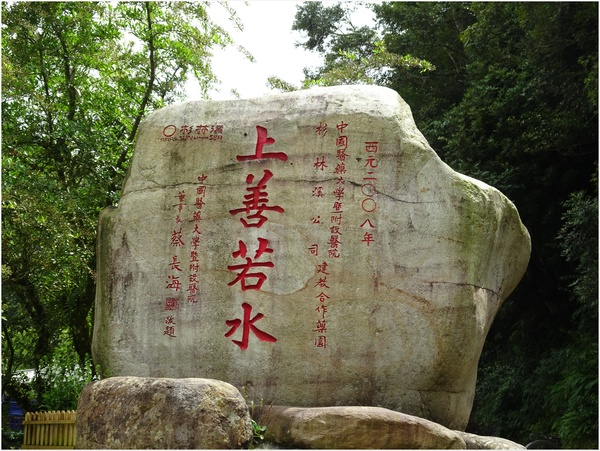 西元二〇〇八年
中國醫藥大學暨附設醫院
杉林溪公司
建教合作藥園
上善若水
中國醫藥大學暨附設醫院
董事長 蔡長海 敬題
杉林溪